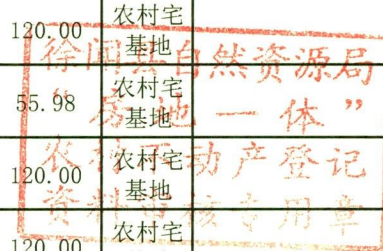 120.00 农村宅基地
55.98 农村宅基地
120.00 农村宅基地
120.00 农村宅
徐闻县自然资源局
“房地一体”
农村不动产登记
资料审核专用章